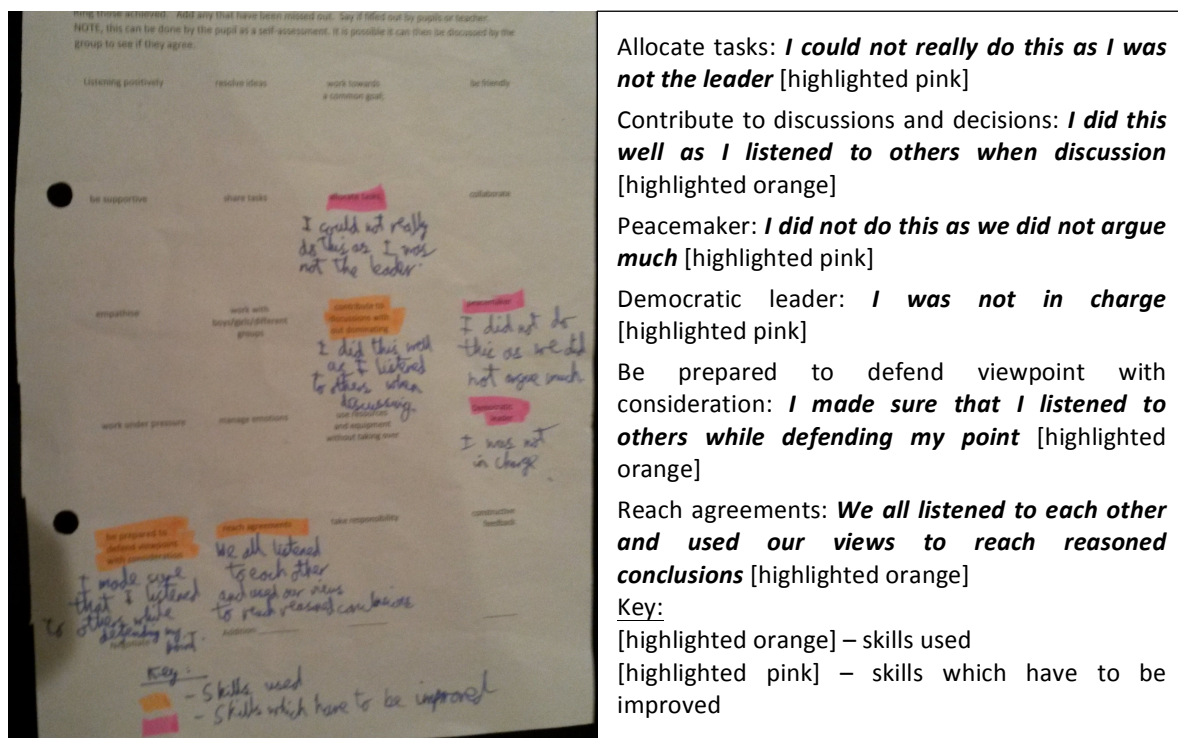 ning those achieved. Add any that have been missed out. Say if filled out by pupils or teacher.
NOTE, this can be done by the pupil as a self-assessment. It is possible it can then be discussed by the
group to see if they agree.
Listening positively
resolve ideas
work towards
a common goal,
be friendly
be supportive
share tasks
allocate tasks
collaborate
I could not really
do this as I was
not the leader.
empathise
work with
boys/girls/different
groups
contribute to
discussions with
out dominating
peacemaker
I did this well
as I listened
to others when
discussing.
I did not do
this as we did
not argue much
work under pressure
manage emotions
use resources
and equipment
without taking over
Democratic
leader
I was not
in charge
be prepared to
defend viewpoints
with consideration
reach agreements
take responsibility
constructive
feedback
I made sure
that I listened
to others while
defending my
point.
We all listened
to each other
and used our views
to reach reasoned conclusions
Negotiate
Addition:
Key:
- Skills used
- Skills which have to be improved
Allocate tasks: I could not really do this as I was
not the leader [highlighted pink]
Contribute to discussions and decisions: I did this
well as I listened to others when discussion
[highlighted orange]
Peacemaker: I did not do this as we did not argue
much [highlighted pink]
Democratic leader: I was not in charge
[highlighted pink]
Be prepared to defend viewpoint with
consideration: I made sure that I listened to
others while defending my point [highlighted
orange]
Reach agreements: We all listened to each other
and used our views to reach reasoned
conclusions [highlighted orange]
Key:
[highlighted orange] – skills used
[highlighted pink] – skills which have to be
improved